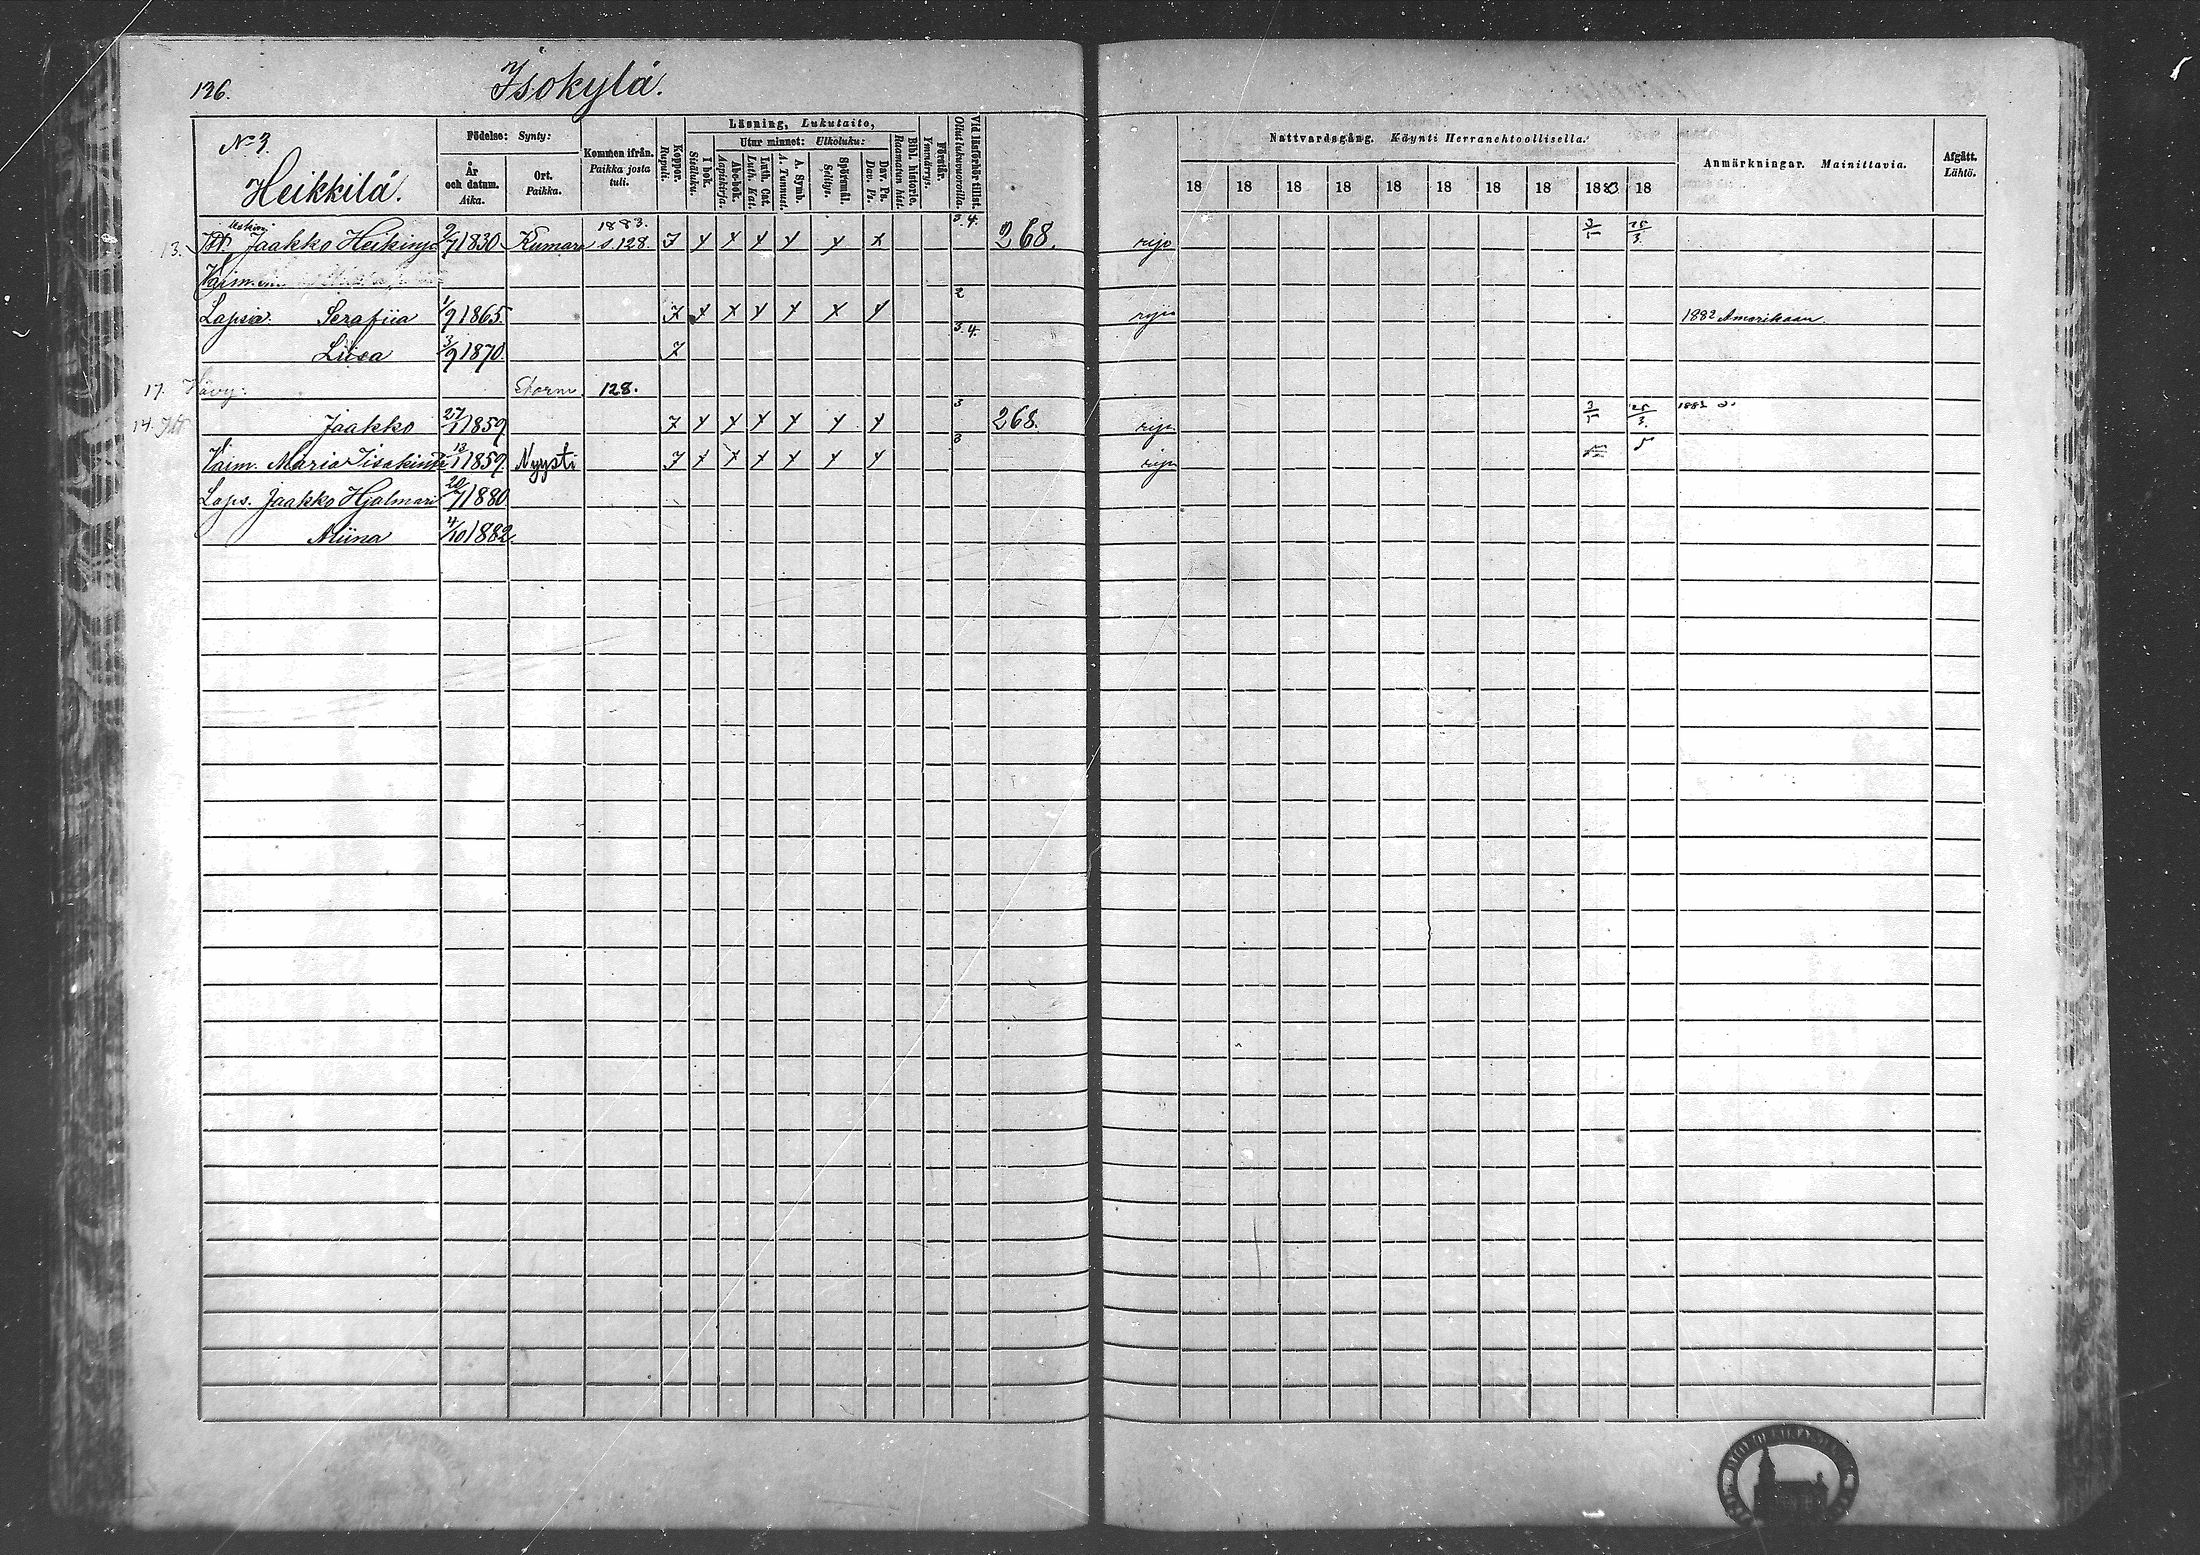 136.
Isokylä.
No 3.
Heikkilä.
Födelse: Synty:
År och datum. Aika.
Ort. Paikka.
Kommen ifrån. Paikka josta tuli.
Koppor. Rupuli.
Läsning, Lukutaito,
I bok. Sisäluku.
Utur minnet: Ulkoluku:
Abc-bok. Aapiskirja.
Luth. Cat. Luth. Kat.
A. Symb. A. Tunnust.
Spörsmål. Selitys.
Dav. Ps. Dav. Ps.
Bibl. historie. Raamatun hist.
Förstår. Ymmärrys.
Vid läsförhör tillst. Ollut lukuvuoroilla.
Nattvardsgång. Käynti Herranehtoollisella.
18 18 18 18 18 18 18 18 1883 18
Anmärkningar. Mainittavia.
Afgått. Lähtö.
13. Jaakko Heikinp. 9/7 1830 Kumara 1883. s. 128. 7 3.4. 268. ripi 3/5 25/3.
Vaim.
Lapsia. Serafiia 1/9 1865. 7 2 ripi 1882 Amerikaan.
Liisa 3/9 1870. 7 3.4.
17. Hävy: 128.
14. Jaakko 27/1 1859 7 3 268. ripi 3/5 25/3. 1882
Vaim. Maria Iisakint. 13/1 1859. Nyysti 7 3 ripi
Laps. Jaakko Hjalmari 20/7 1880
Miina 4/10 1882.